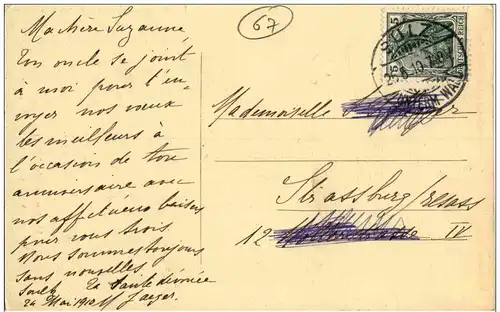 67
Ma chère Suzanne
Ton oncle se joint
à moi pour t'en-
voyer nos vœux
les meilleurs à
l'occasion de ton
anniversaire avec
nos affectueux baisers
pour vous trois.
Nous sommes toujours
sans nouvelles.
Ta Tante dévouée
24 Mai 1910 M Jaeger.
Mademoiselle
Strassburg/
12 IV